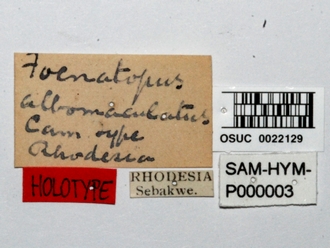 Foenatopus
albomaculatus
Cam type
Rhodesia
OSUC 0022129
HOLOTYPE
RHODESIA
Sebakwe.
SAM-HYM-
P000003